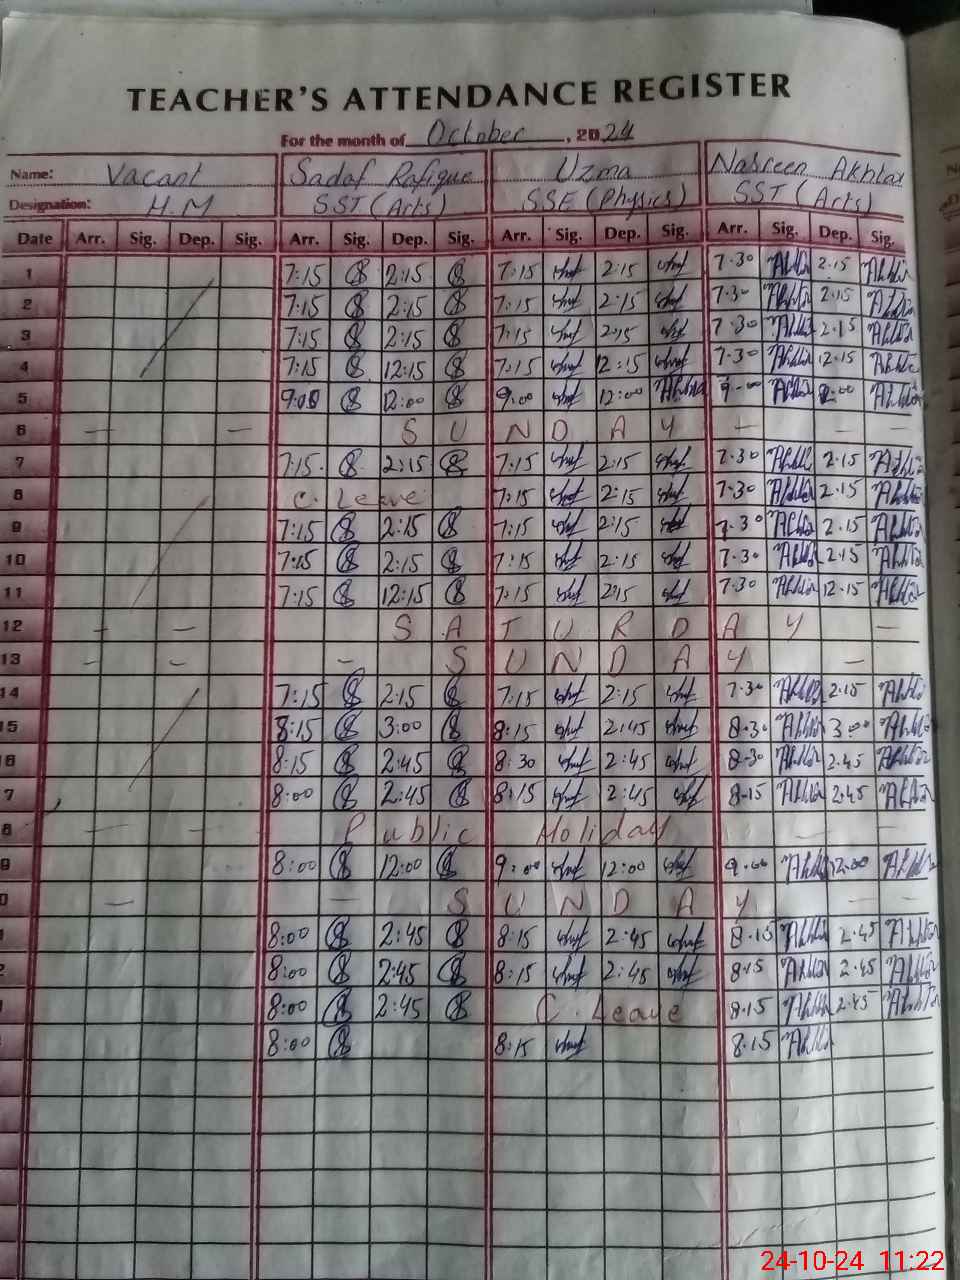 TEACHER'S ATTENDANCE REGISTER
For the month of October, 2024
Name: Vacant Sadaf Rafique Uzma Nasreen Akhtar
Designation: H.M SST (Arts) SSE (Physics) SST (Arts)
Date Arr. Sig. Dep. Sig. Arr. Sig. Dep. Sig. Arr. Sig. Dep. Sig. Arr. Sig. Dep. Sig.
1 7:15 2:15 7:15 2:15 7-30 Akhtar 2-15 Akhtar
2 7:15 2:15 7:15 2:15 7-30 Akhtar 2-15 Akhtar
3 7:15 2:15 7:15 2:15 7-30 Akhtar 2-15 Akhtar
4 7:15 12:15 7:15 12:15 7-30 Akhtar 12-15 Akhtar
5 9:00 12:00 9:00 12:00 Akhtar 9-00 Akhtar Akhtar
6 — — S U N D A Y — — —
7 7:15 2:15 7:15 2:15 7-30 Akhtar 2-15 Akhtar
8 C. Leave 7:15 2:15 7-30 Akhtar 2-15 Akhtar
9 7:15 2:15 7:15 2:15 7-30 Akhtar 2-15 Akhtar
10 7:15 2:15 7:15 2:15 7-30 Akhtar 2-15 Akhtar
11 7:15 12:15 7:15 7-30 Akhtar 12-15 Akhtar
12 — — S A T U R D A Y —
13 — — — S U N D A Y —
14 7:15 2:15 7:15 2:15 7-30 Akhtar 2-15 Akhtar
15 8:15 3:00 8:15 2:45 8-30 Akhtar 3-00 Akhtar
16 8:15 2:45 8:30 2:45 8-30 Akhtar 2-45 Akhtar
7 8:00 2:45 8:15 2:45 8-15 Akhtar 2-45 Akhtar
8 — — — Public Holiday — — —
9 8:00 12:00 9:00 12:00 9-00 Akhtar 12-00 Akhtar
0 — — S U N D A Y — —
8:00 2:45 8:15 2:45 8-15 Akhtar 2-45 Akhtar
2 8:00 2:45 8:15 2:45 8-15 Akhtar 2-45 Akhtar
8:00 2:45 C. Leave 8-15 Akhtar 2-45 Akhtar
8:00 8:15 8-15 Akhtar
24-10-24 11:22